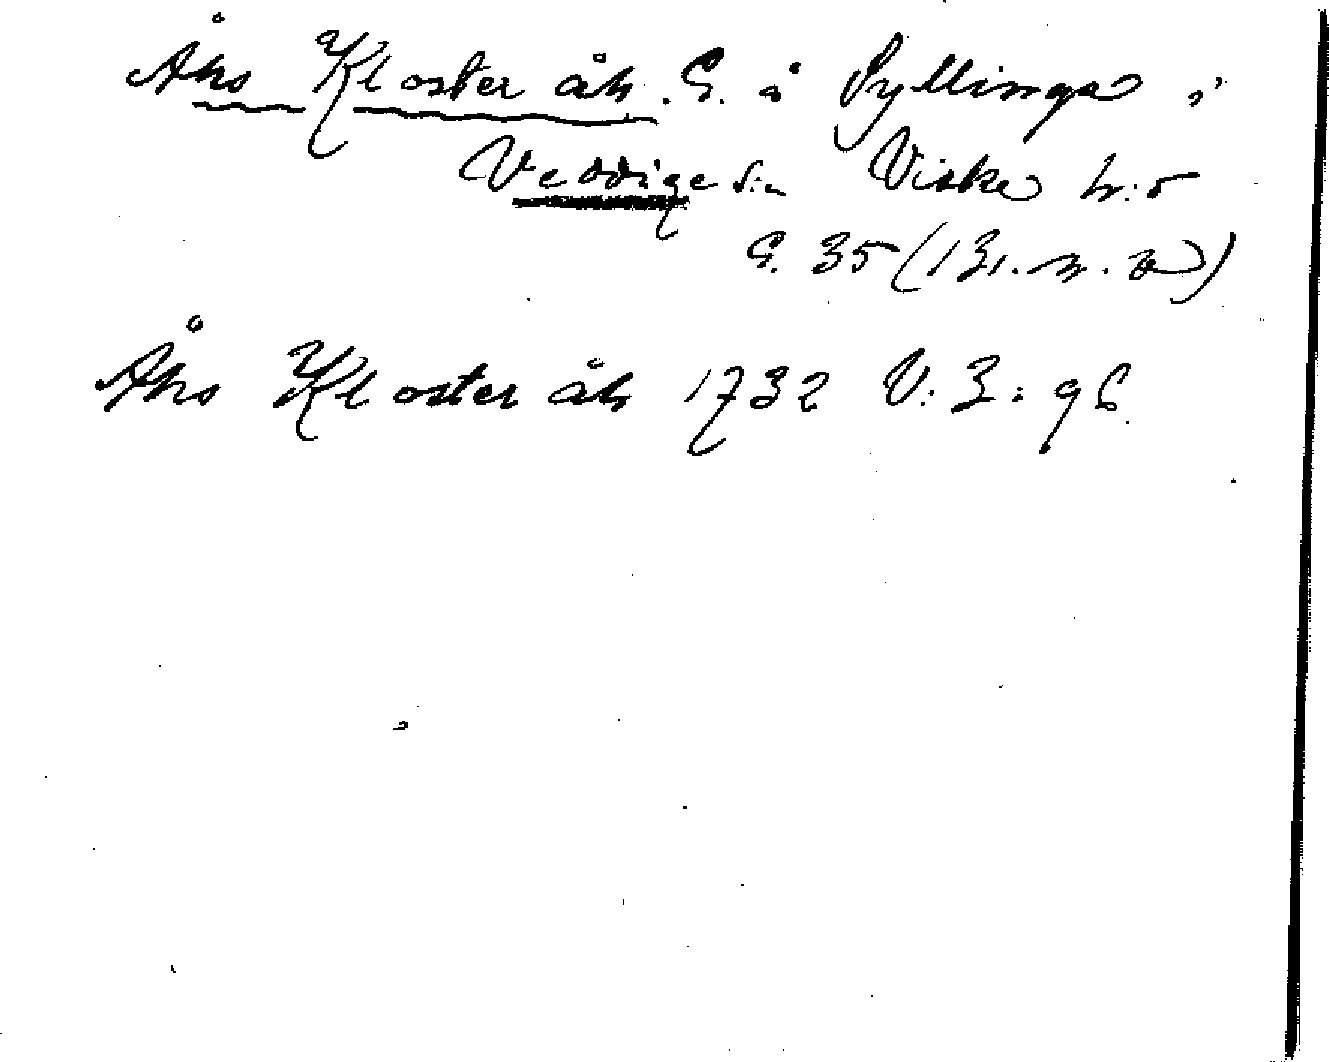 Åhs Kloster åk. S. å Syllinge i
Veddige s:n Viske h:d
S. 35 (131. n. a)
Åhs Kloster åk 1732 V: 3: 96